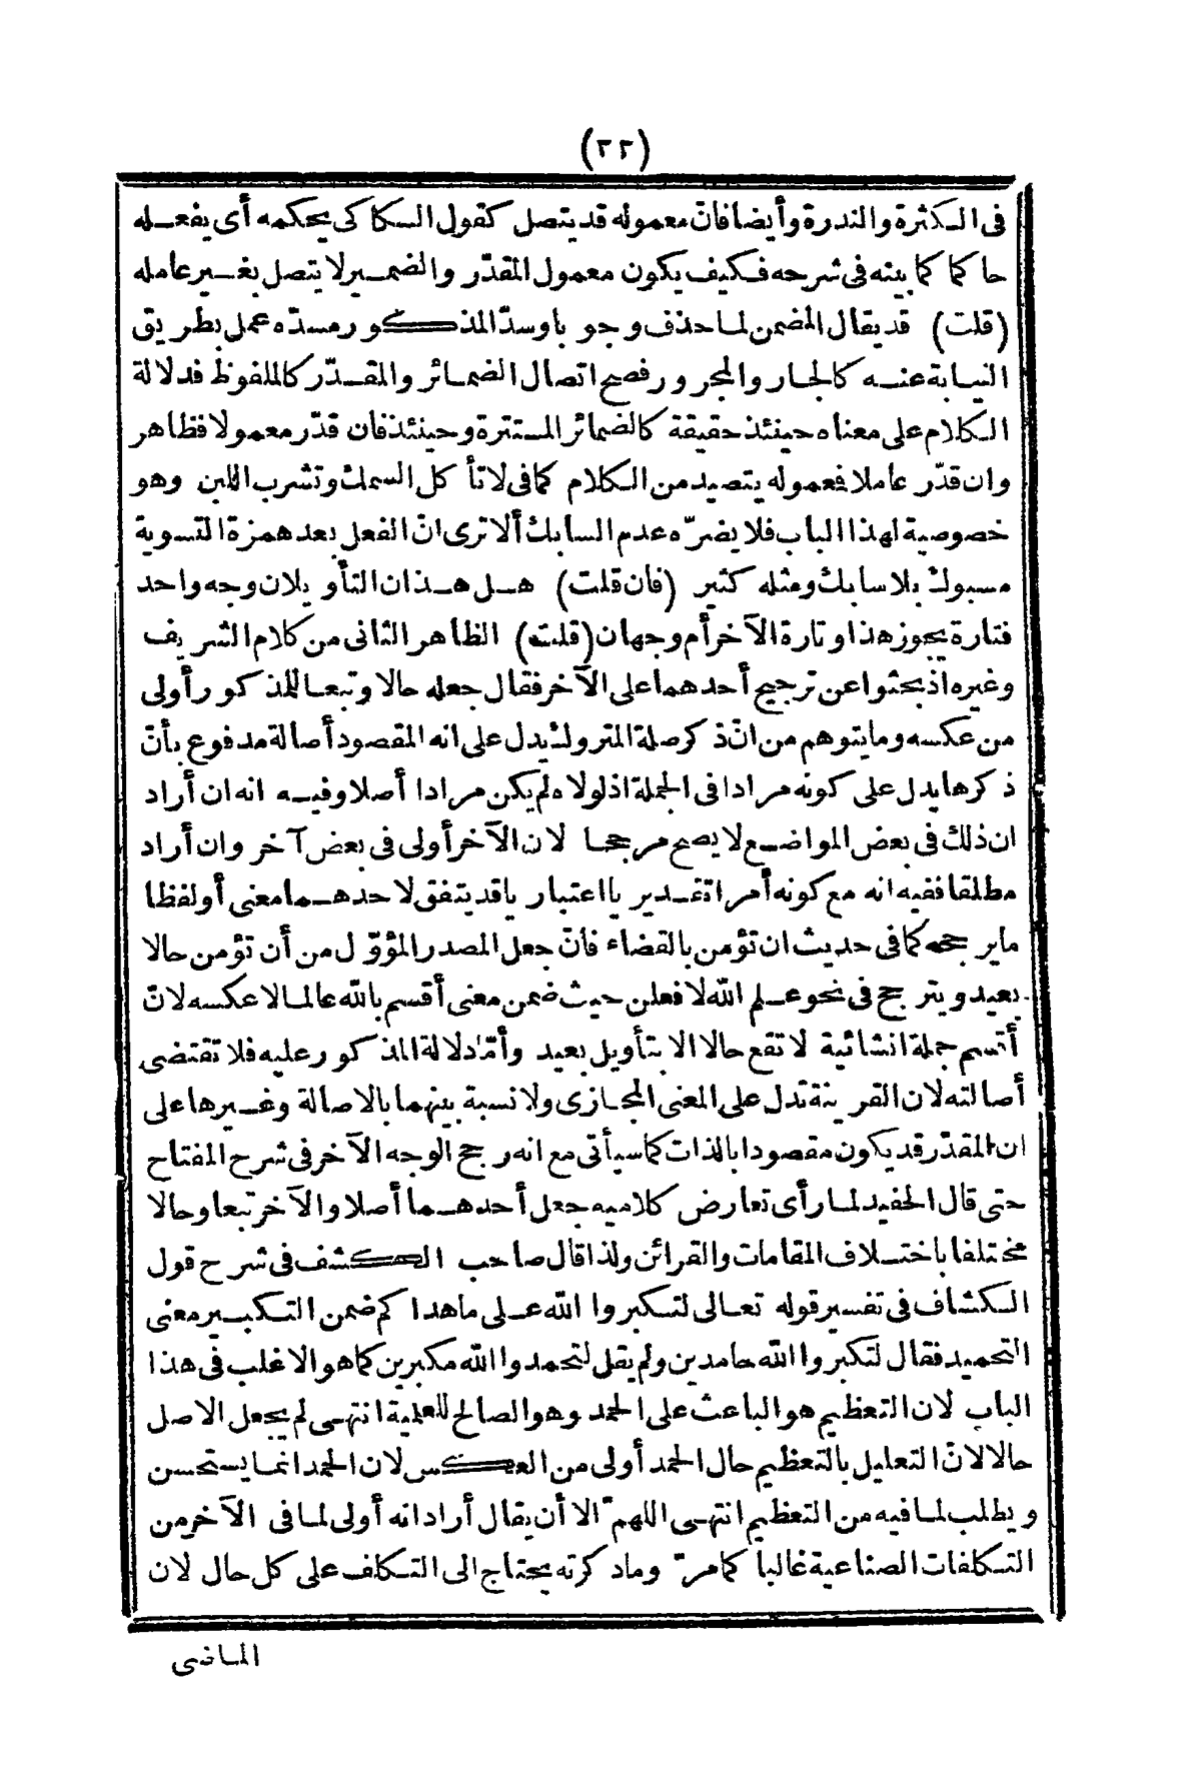 (٢٢)
فى الكثرة والندرة وأيضا فان معموله قد يتصل كقول السكاكى يحكمه أى يفعله
حاكما كما بينه فى شرحه فكيف يكون معمول المقدّر والضمير لا يتصل بغير عامله
(قلت) قد يقال المضمن لما حذف وجوبا وسدّ المذكور مسدّه عمل بطريق
النيابة عنه كالجار والمجرور فصح اتصال الضمائر والمقدّر كالملفوظ فدلالة
الكلام على معناه حينئذ حقيقة كالضمائر المستترة وحينئذ فان قدّر معمولا فظاهر
وان قدّر عاملا فعموله يتصيد من الكلام كما فى لا تأكل السمك وتشرب اللبن وهو
خصوصية لهذا الباب فلا يضرّه عدم السابك ألا ترى انّ الفعل بعد همزة التسوية
مسبوك بلا سابك ومثله كثير (فان قلت) هل هذان التأويلان وجه واحد
فتارة يجوز هذا وتارة الآخر أم وجهان (قلت) الظاهر الثانى من كلام الشريف
وغيره اذ بحثوا عن ترجيح أحدهما على الآخر فقال جعله حالا وتبعا للمذكور أولى
من عكسه وما يتوهم من انّ ذكر صلة المتروك يدل على انه المقصود أصالة مدفوع بأنّ
ذكرها يدل على كونه مرادا فى الجملة اذ لولاه لم يكن مرادا أصلا وفيه انه ان أراد
ان ذلك فى بعض المواضع لا يصح مرجحا لان الآخر أولى فى بعض آخر وان أراد
مطلقا ففيه انه مع كونه أمرا تقديريا اعتباريا قد يتفق لاحدهما معنى أو لفظا
ما يرجحه كما فى حديث ان تؤمن بالقضاء فانّ جعل المصدر المؤوّل من أن تؤمن حالا
بعيد ويترجح فى نحو علم الله لافعلن حيث ضمن معنى أقسم بالله عالما لا عكسه لانّ
أقسم جملة انشائية لا تقع حالا الا بتأويل بعيد وأمّا دلالة المذكور عليه فلا تقتضى
أصالته لان القرينة تدل على المعنى المجازى ولا نسبة بينهما بالاصالة وغيرها على
ان المقدّر قد يكون مقصودا بالذات كما سيأتى مع انه رجح الوجه الآخر فى شرح المفتاح
حتى قال الحفيد لما رأى تعارض كلاميه جعل أحدهما أصلا والآخر تبعا وحالا
مختلفا باختلاف المقامات والقرائن ولذا قال صاحب الكشف فى شرح قول
الكشاف فى تفسير قوله تعالى لتكبروا الله على ما هداكم ضمن التكبير معنى
التحميد فقال لتكبروا الله حامدين ولم يقل لتحمدوا الله مكبرين كما هو الاغلب فى هذا
الباب لان التعظيم هو الباعث على الحمد وهو الصالح للعلية انتهى لم يجعل الاصل
حالا لانّ التعليل بالتعظيم حال الحمد أولى من العكس لان الحمد انما يستحسن
ويطلب لما فيه من التعظيم انتهى اللهمّ الا أن يقال أراد انه أولى لما فى الآخر من
التكلفات الصناعية غالبا كما مرّ وما ذكرته يحتاج الى التكلف على كل حال لان
الماضى